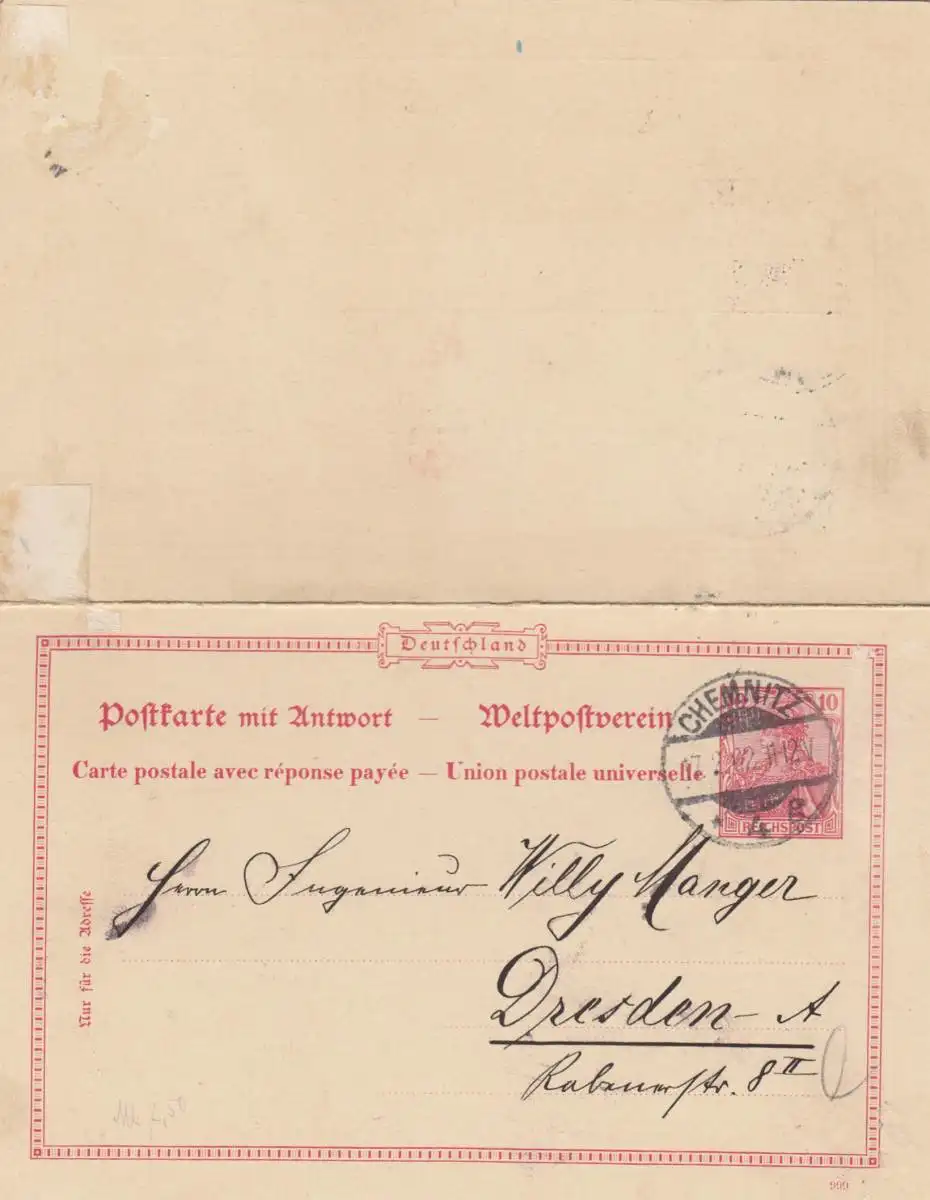 Deutschland
Postkarte mit Antwort — Weltpostverein
Carte postale avec réponse payée — Union postale universelle
10
REICHSPOST
CHEMNITZ
* 4 g
Herrn Ingenieur Willy Manger
Dresden-A
Rabenerstr. 8 II
Nur für die Adresse
999